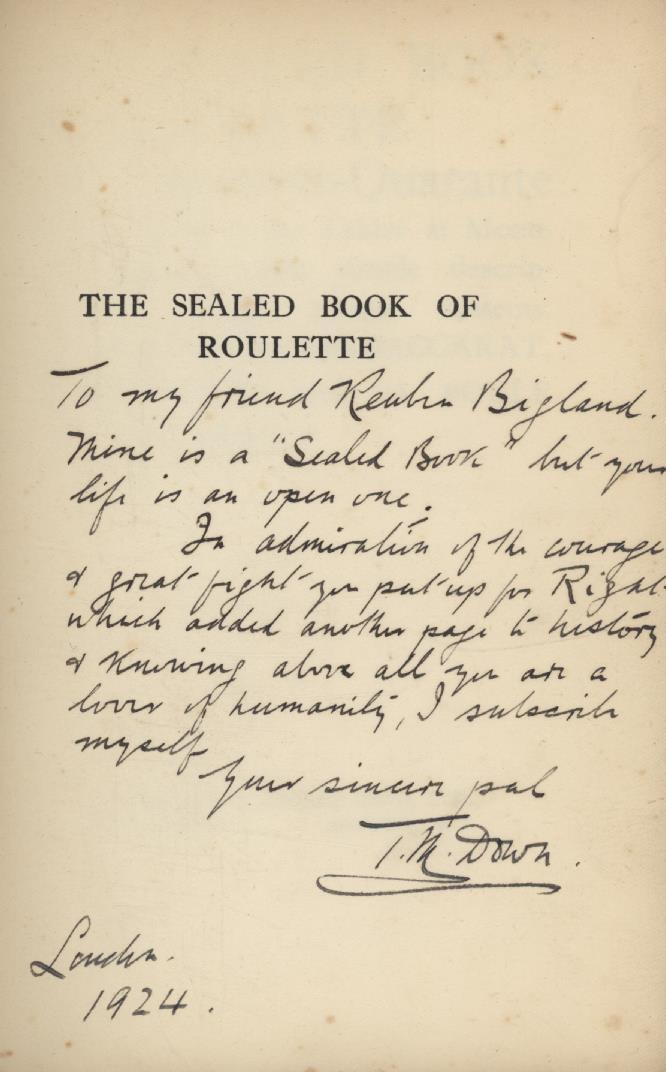 THE SEALED BOOK OF
ROULETTE
To my friend Reuben Bigland.
Mine is a "Sealed Book" but your
life is an open one.
In admiration of the courage
& great fight you put up for Right
which added another page to history
& knowing above all you are a
lover of humanity, I subscribe
myself
Your sincere pal
T. M. Down.
London.
1924.